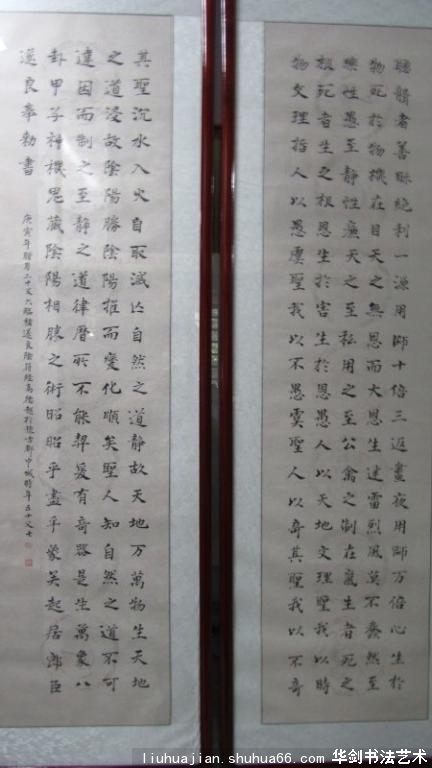 聽聾者善眎絶利一源用師十倍三返晝夜用師万倍心生於
物死於物機在目天之無恩而大恩生迅雷烈風莫不蠢然至
樂性愚至靜性廉天之至私用之至公禽之制在氣生者死之
根死者生之根恩生於害生於恩愚人以天地文理聖我以時
物文理哲人以愚虞聖我以不愚虞聖人以奇其聖我以不奇
其聖沉水入火自取滅亡自然之道靜故天地万萬物生天地
之道浸故陰陽勝陰陽推而變化順矣聖人知自然之道不可
違因而制之至靜之道律曆所不能契爰有奇器是生萬象八
卦甲子神機鬼藏陰陽相勝之術昭昭乎盡乎象矣起居郎臣
遂良奉勅書
庚寅年腊月二十又六臨褚遂良陰符經高德超於古都中城時年五十又七
liuhuajian.shuhua66.com 华剑书法艺术